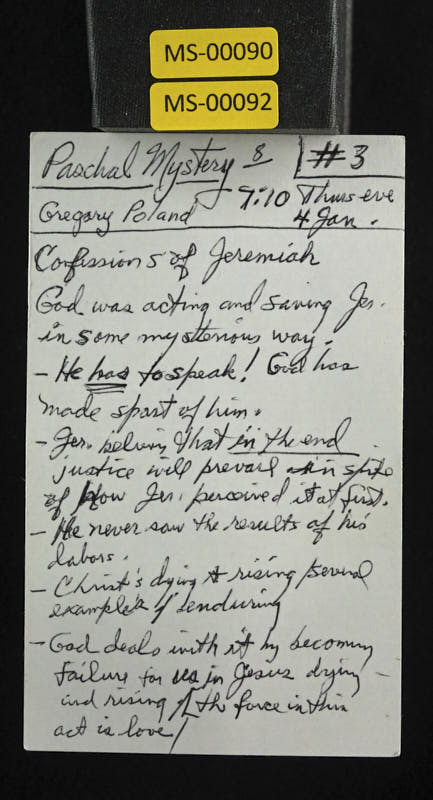 MS-00090
MS-00092
Paschal Mystery 8 #3
Gregory Poland 7:10 Thurs eve
4 Jan.
Confessions of Jeremiah
God was acting and saving Jer.
in some mysterious way.
- He has to speak! God has
made spart of him.
- Jer. belives that in the end
justice will prevail in spite
of How Jer. perceived it at first.
- He never saw the results of his
labors.
- Christ's dying & rising several
examples of enduring
- God deals with it by becoming
failure for us in Jesus dying -
and rising [the force in this
act is love]